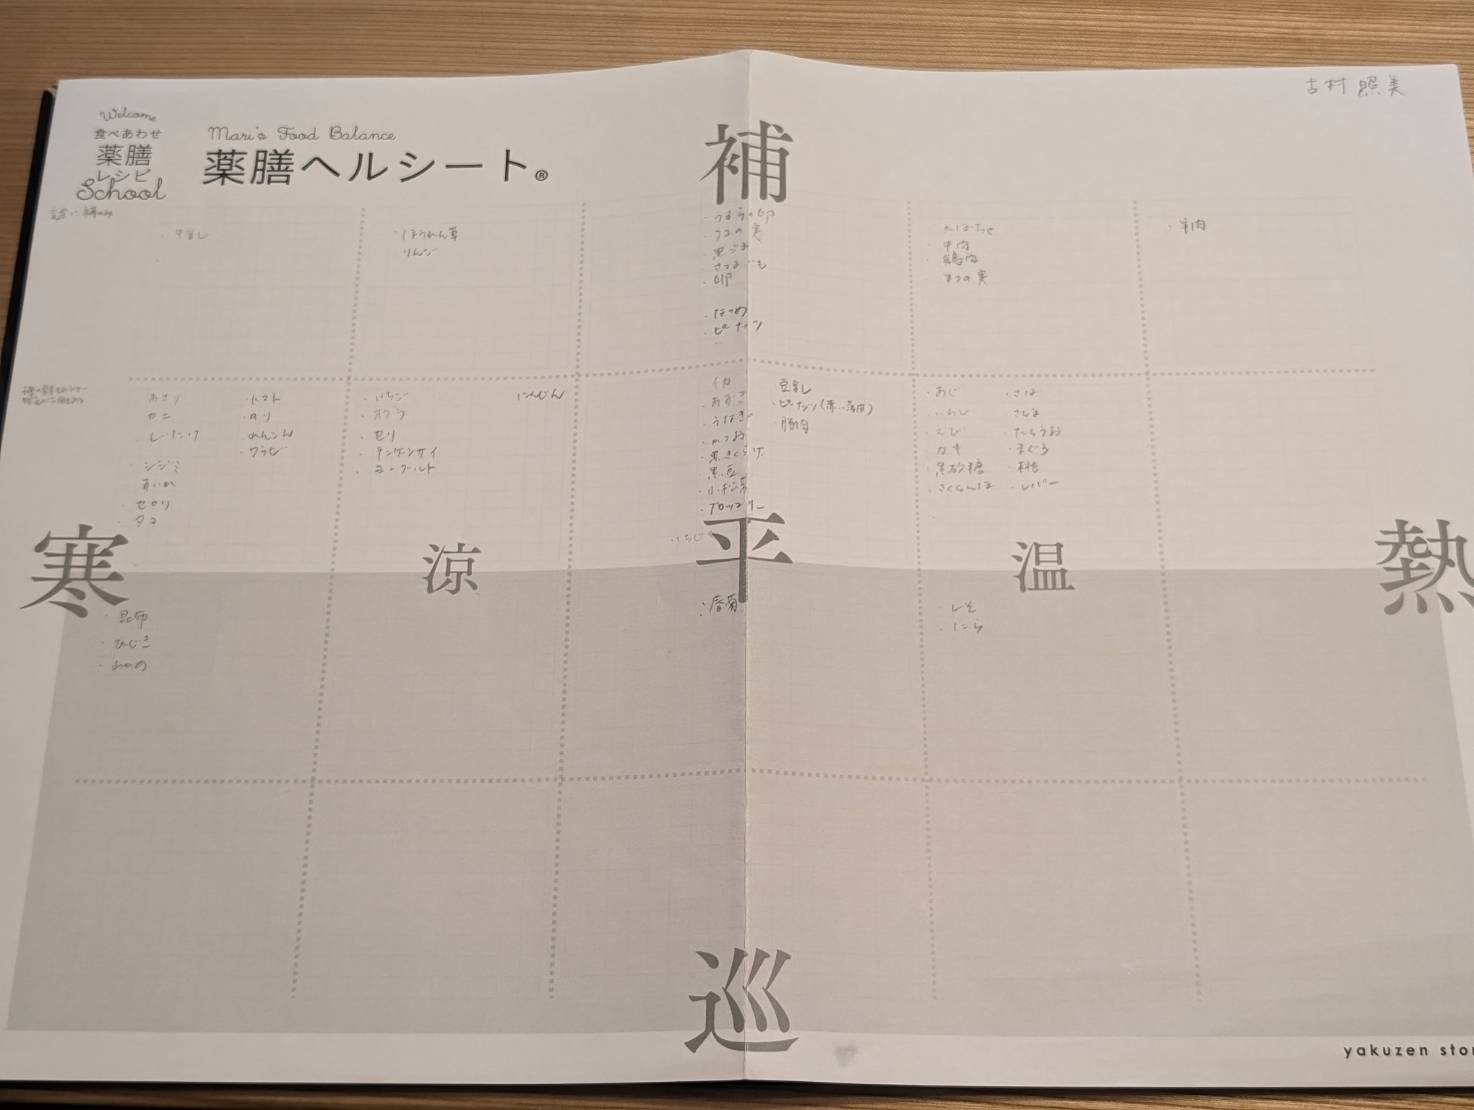 Welcome
食べあわせ
薬膳
レシピ
School
Mari's Food Balance
薬膳ヘルシート®
吉村 照美
補
・牛乳
・ほうれん草
りんご
・うずらの卵
・クコの実
・黒ごま
・さつまいも
・卵
・なつめ
・ピーナッツ
かぼちゃ
・牛肉
・鶏肉
まつの実
・羊肉
あさり
カニ
しいたけ
・シジミ
すいか
・セロリ
・タコ
・トマト
・のり
・れんこん
・ワラビ
・いちご
・オクラ
・セリ
・チンゲンサイ
・ヨーグルト
にんじん
イカ
・あずき
・うなぎ
・かつお
・黒きくらげ
・黒豆
・小松菜
・ブロッコリー
いちじく
豆乳
・ピーナッツ(薄い薄皮)
・豚肉
・あじ
・いわし
・えび
・カキ
・黒砂糖
・さくらんぼ
・さば
さんま
・たちうお
・まぐろ
・桃
・レバー
寒
涼
平
温
熱
・昆布
・ひじき
・わかめ
・春菊
・しそ
・にら
巡
yakuzen stor